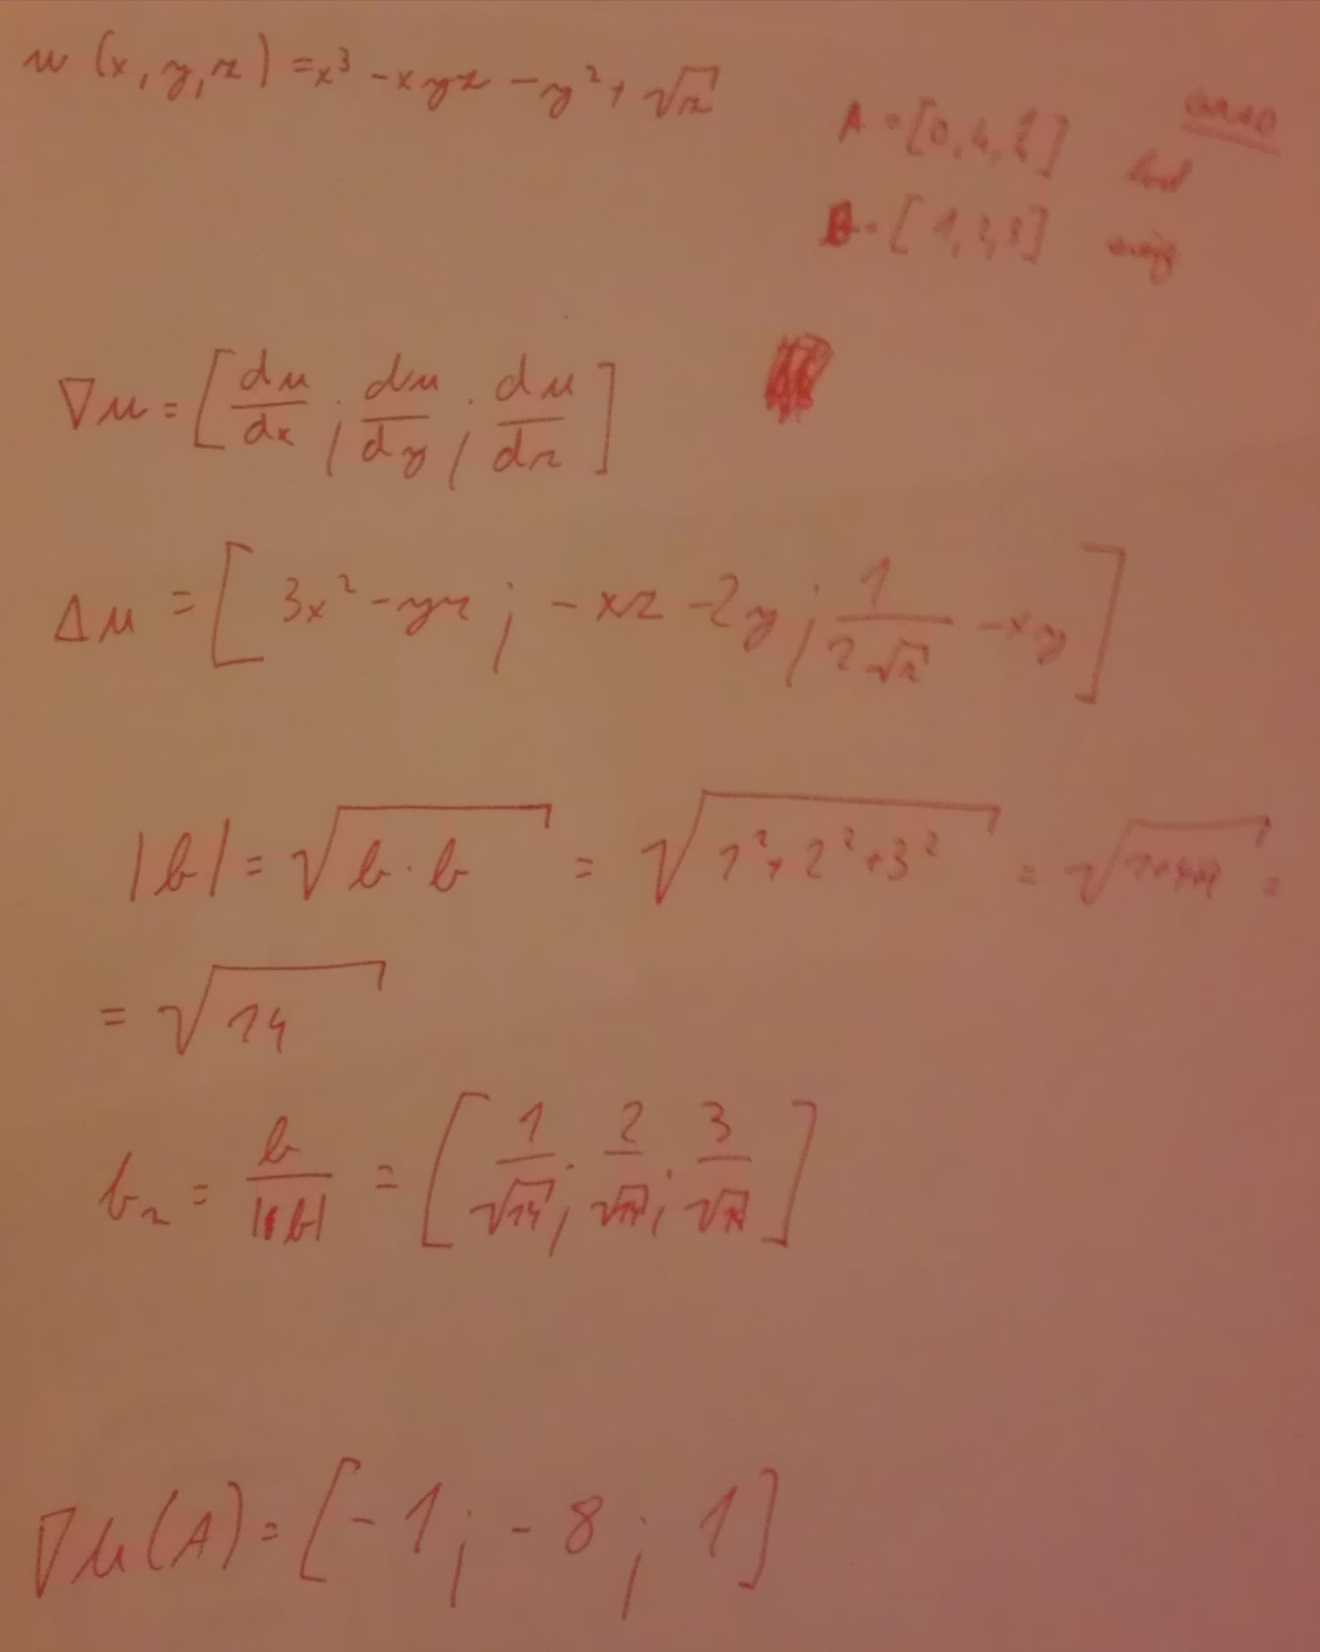 u (x, y, z) = x³ - xyz - y² + √z
A = [0, 4, ]
B = [1, 2, 3]
∇u = [du/dx ; du/dy ; du/dz]
Δu = [3x² - yz ; - xz - 2y ; 1/(2√z) - xy]
|b| = √(b · b) = √(1² + 2² + 3²) = √(1+4+9) =
= √14
b₂ = b/|b| = [1/√14 ; 2/√14 ; 3/√14]
∇u(A) = [-1 ; -8 ; 1]